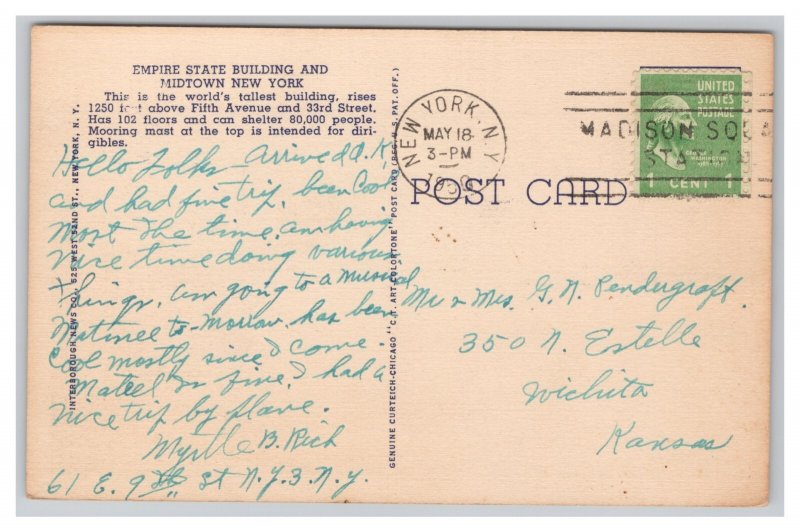 EMPIRE STATE BUILDING AND
MIDTOWN NEW YORK
This is the world's tallest building, rises
1250 feet above Fifth Avenue and 33rd Street.
Has 102 floors and can shelter 80,000 people.
Mooring mast at the top is intended for diri-
gibles.
Hello Folks Arrived O.K.
and had fine trip, been Cool
most the time, am having
nice time doing various
things, am going to a musical
Matinee to-morrow, has been
Cool mostly since I come.
is fine, I had a
nice trip by plane.
Myrtle B. Rich
61 E. 9th St N.Y.3 N.Y.
INTERBOROUGH NEWS CO., 525 WEST 52ND ST., NEW YORK, N. Y.
GENUINE CURTEICH-CHICAGO "C.T. ART-COLORTONE" POST CARD (REG. U.S. PAT. OFF.)
NEW YORK, N.Y.
MAY 18
3-PM
1950
MADISON SQUA
STATION
UNITED
STATES
POSTAGE
GEORGE
WASHINGTON
1 CENT 1
POST CARD
Mr & Mrs. G. N. Pendergraft.
350 N. Estelle
Wichita
Kansas